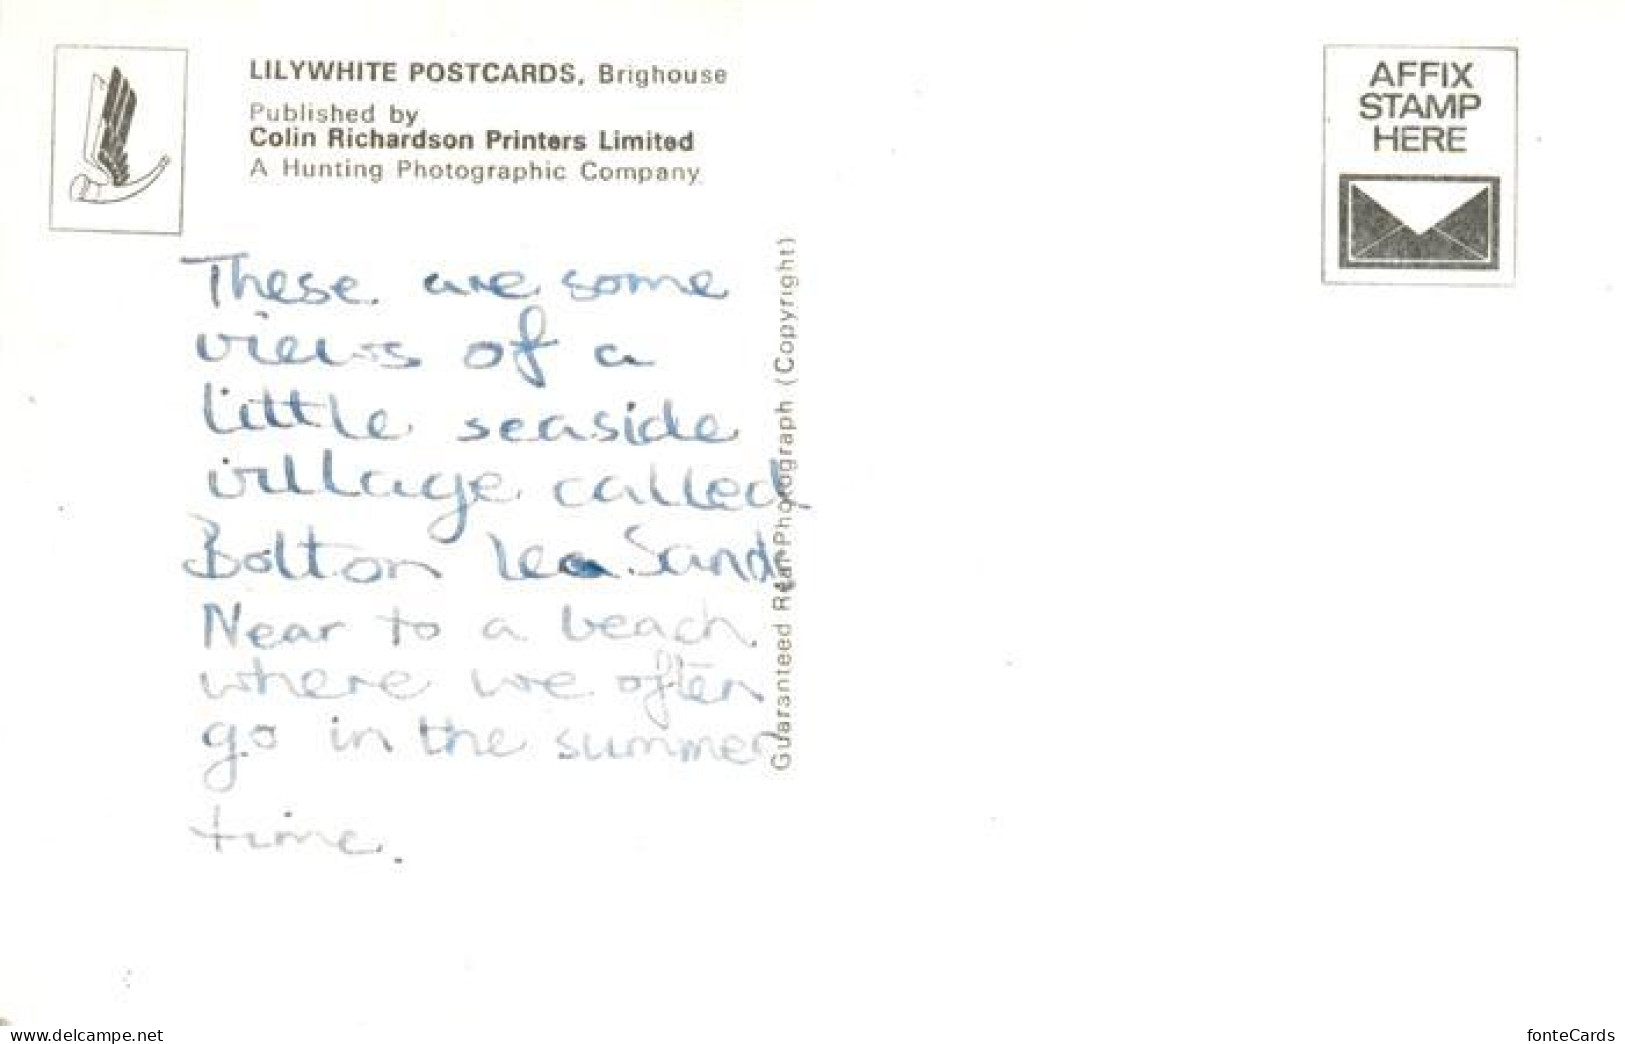 LILYWHITE POSTCARDS, Brighouse
Published by
Colin Richardson Printers Limited
A Hunting Photographic Company
AFFIX
STAMP
HERE
These are some
views of a
little seaside
village called
Bolton lea Sands
Near to a beach
where we often
go in the summer
time.
Guaranteed Real Photograph (Copyright)
www.delcampe.net
fonteCards